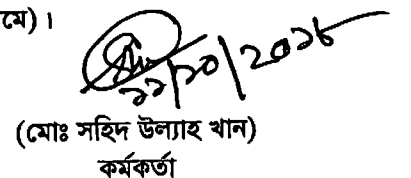 মে)।
২২/১০/২০১৮
(মোঃ সহিদ উল্যাহ খান)
কর্মকর্তা